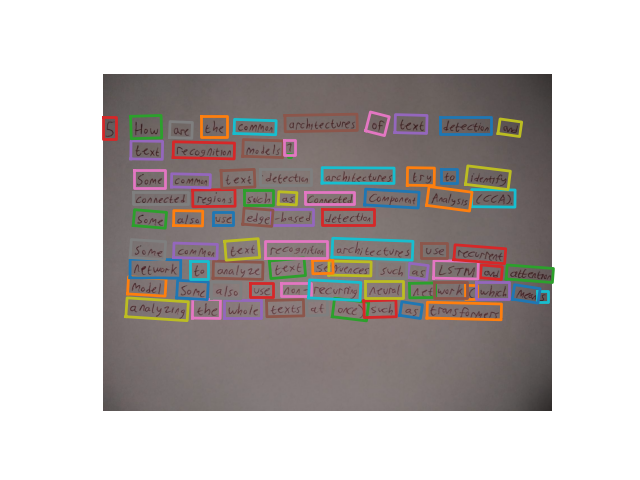 5 How are the common architectures of text detection and
text recognition models?
Some common text detection architectures try to identify
connected regions such as connected Component Analysis (CCA)
Some also use edge-based detection
Some common text recognition architectures use recurrent
Network to analyze text sequences such as LSTM and attention
Model Some also use non-recurring neural network (which means
analyzing the whole texts at once) such as transformers